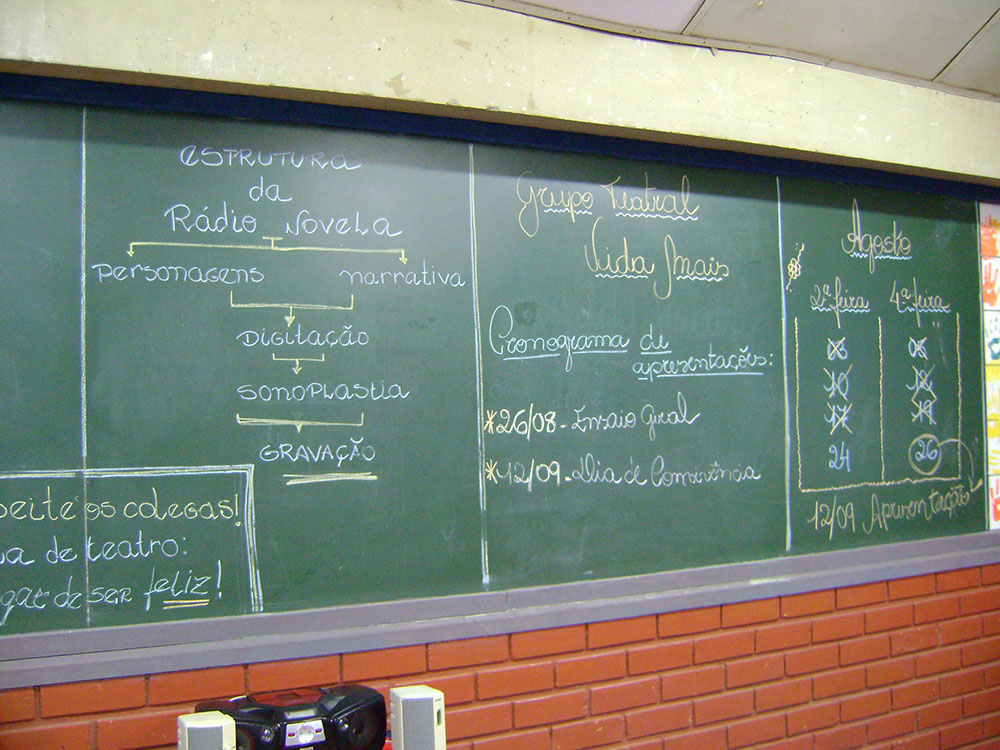 ESTRUTURA
da
Rádio Novela
Personagens narrativa
Digitação
Sonoplastia
GRAVAÇÃO
peite os colegas!
la de teatro:
gar de ser feliz!
Grupo Teatral
Vida Mais
Cronograma de
apresentações:
*26/08 - Ensaio Geral
*12/09 - Dia de Convivência
Agosto
2ª feira 4ª feira
03 05
10 12
17 19
24 26
12/09 Apresentação